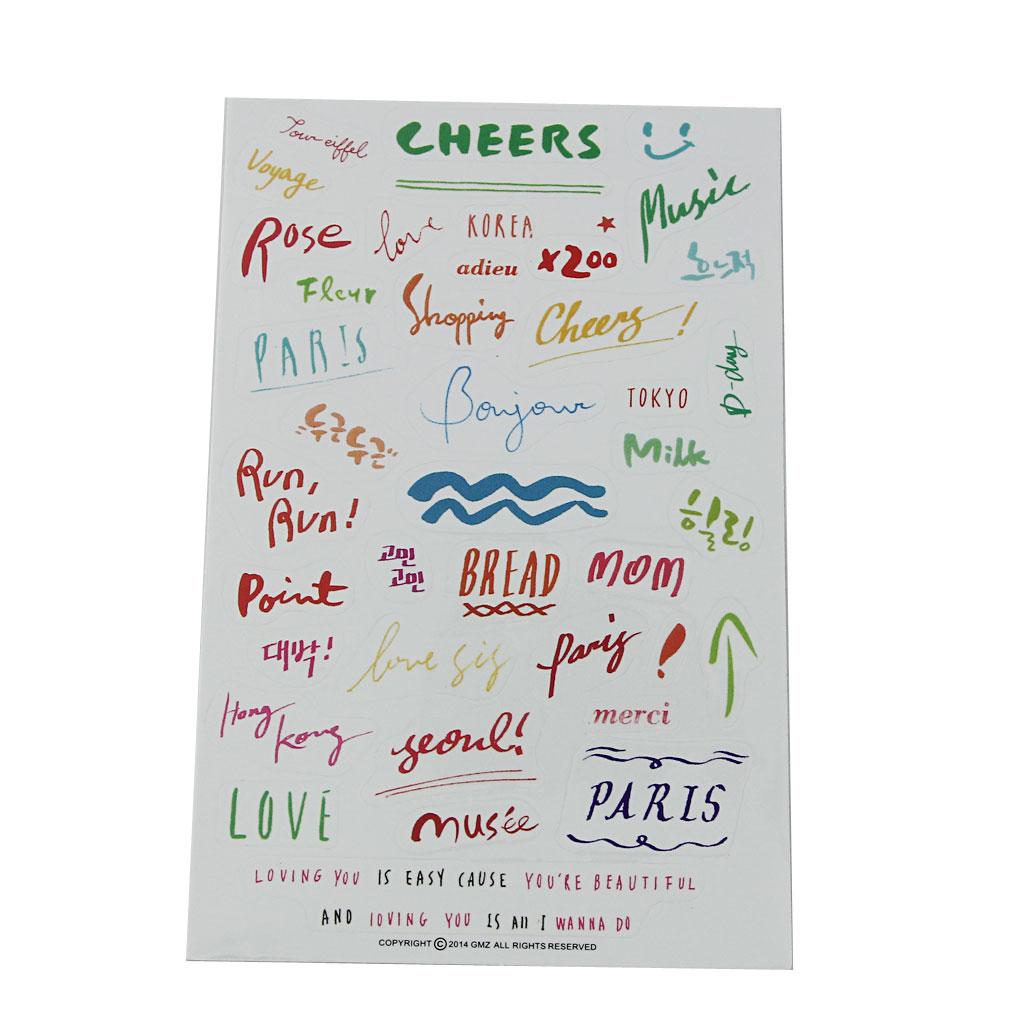 Tour eiffel
CHEERS
Voyage
Music
Rose
love
KOREA
adieu
x200
Fleur
Shopping
Cheers!
PARIS
D-day
Bonjour
TOKYO
두근두근
Milk
Run,
Run!
힐링
고민
고민
BREAD
MOM
Point
대박!
love sis
paris
!
Hong
kong
merci
seoul!
PARIS
LOVE
musée
LOVING YOU IS EASY CAUSE YOU'RE BEAUTIFUL
AND LOVING YOU IS All I WANNA DO
COPYRIGHT © 2014 GMZ ALL RIGHTS RESERVED